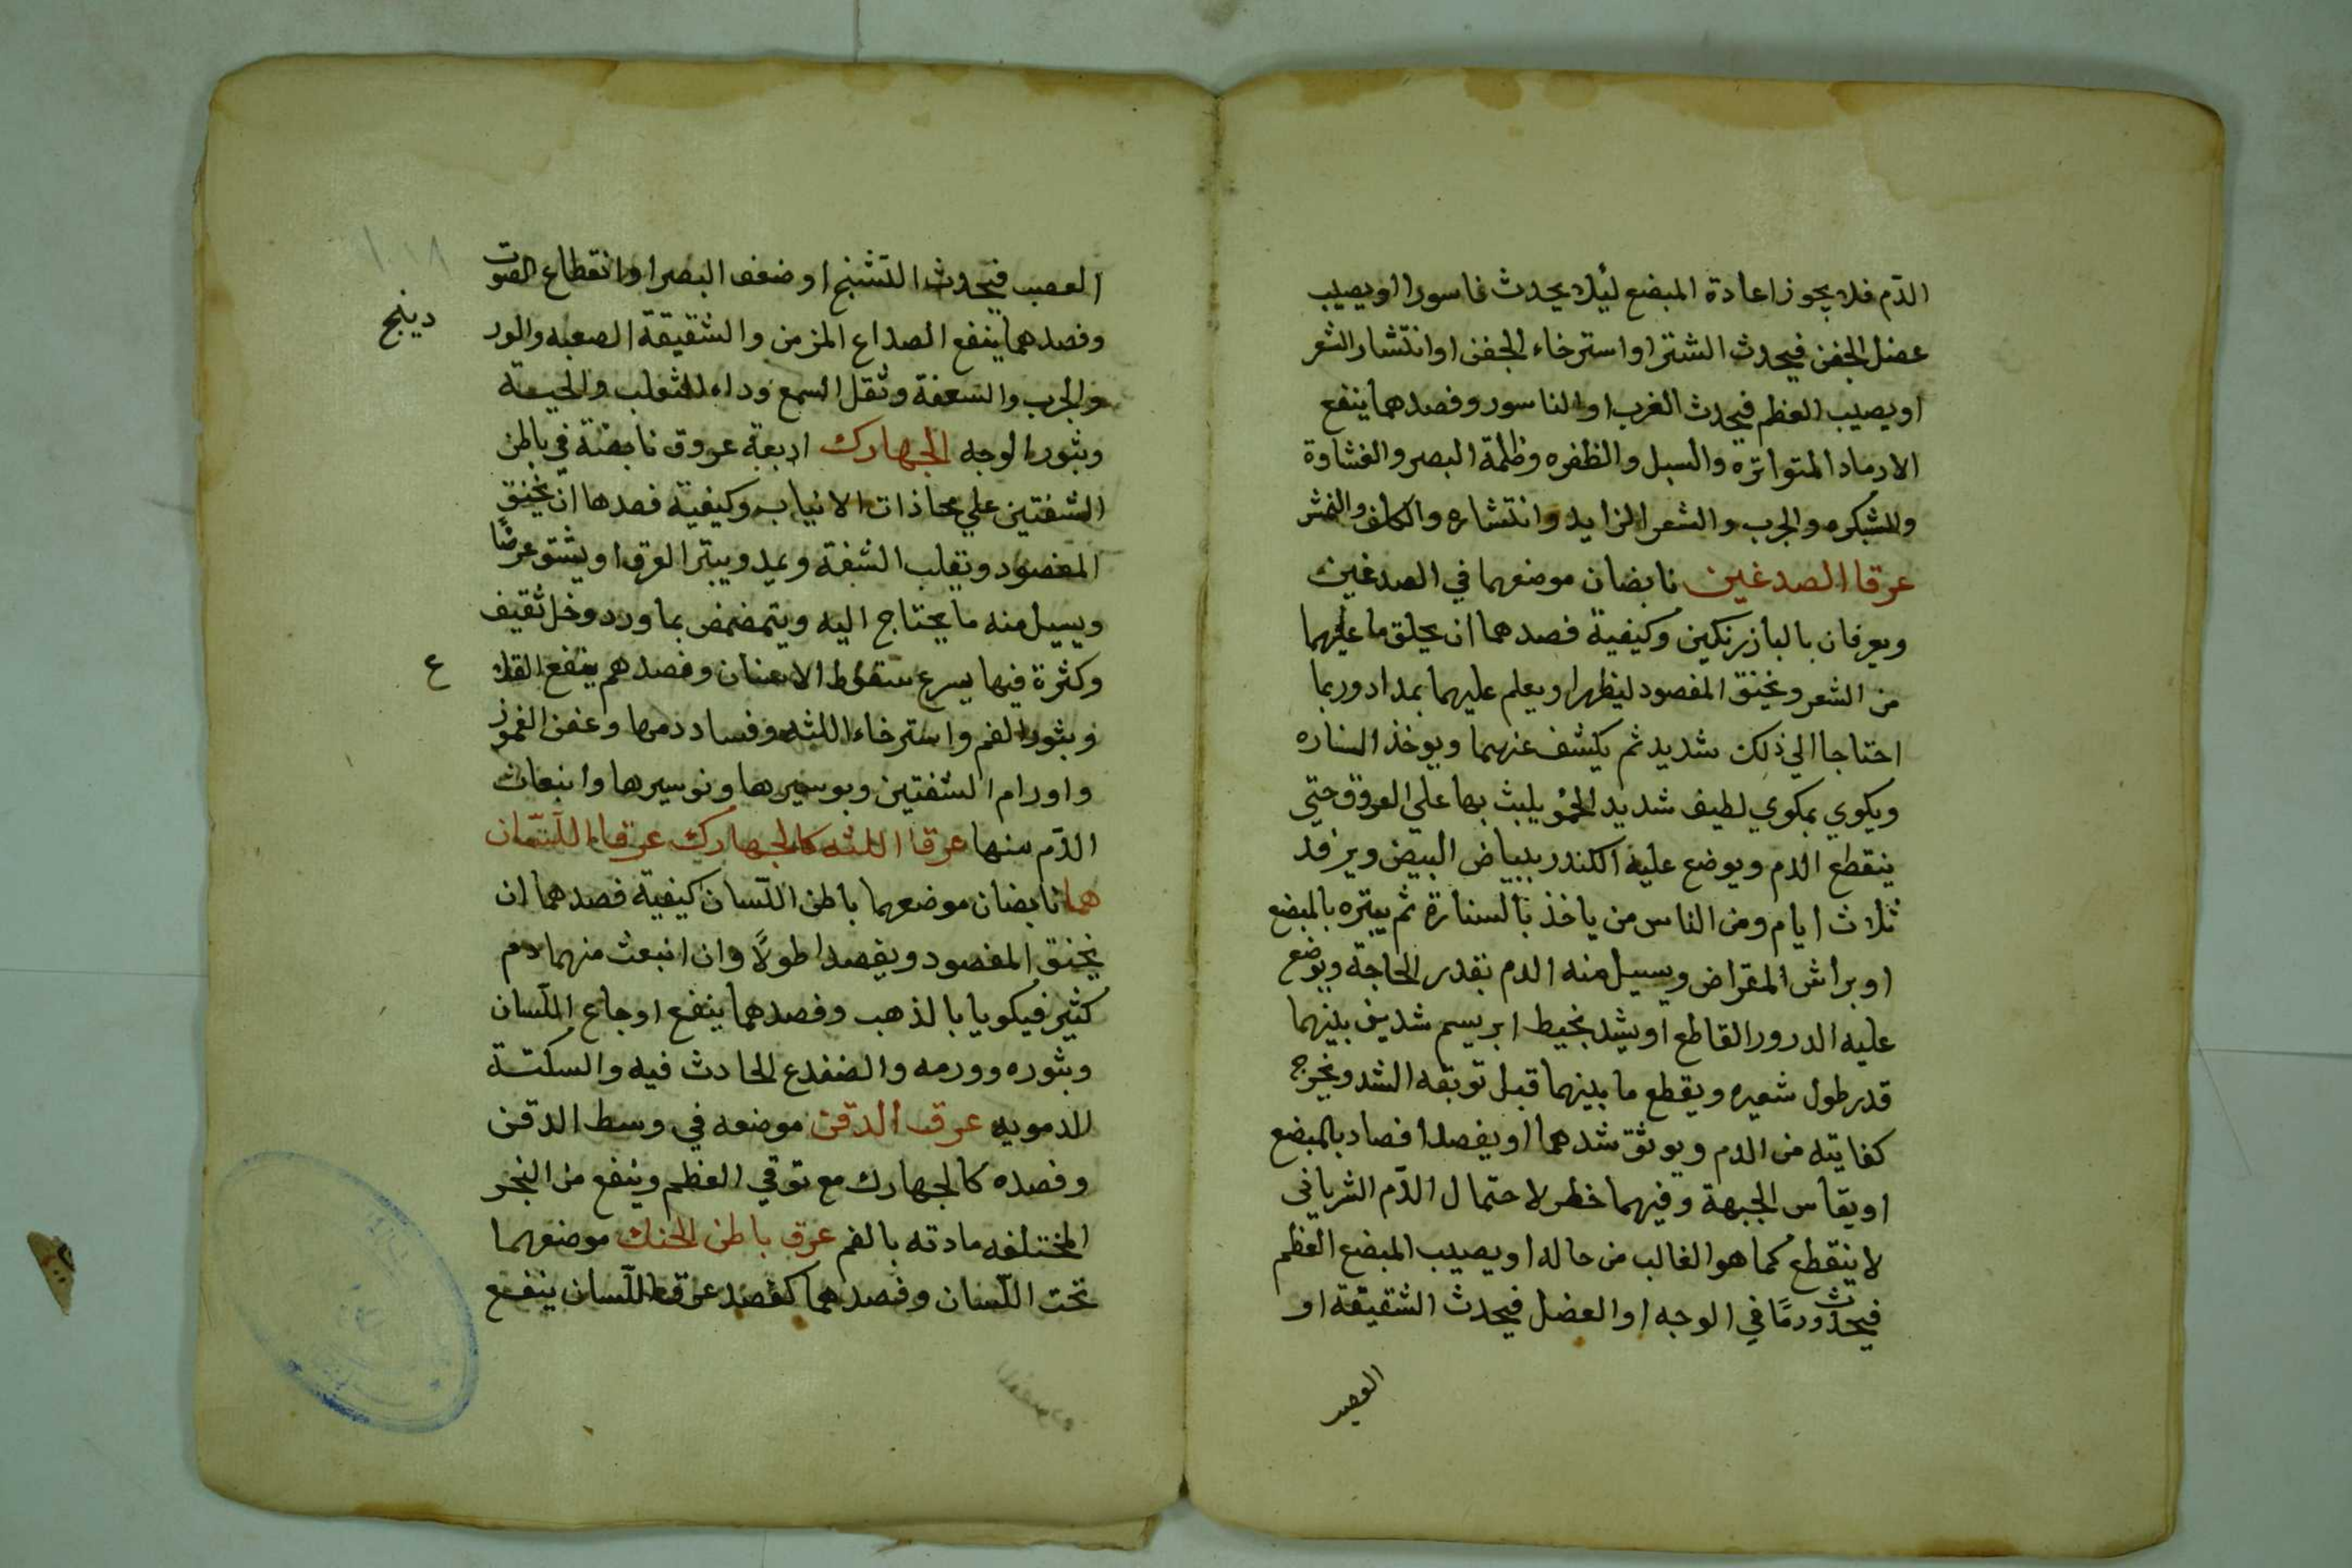 الدّم فلا يجوز اعادة المبضع لئلا يحدث ناسورا او يصيب
عضل الجفن فيحدث الشتر او استرخاء الجفن او انتشار الشعر
او يصيب العظم فيحدث الغرب او الناسور وفصدهما ينفع
الارماد المتواتره والسبل والظفره وظلمة البصر والغشاوة
والشبكره والجرب والشعر الزايد وانتشاره والكلف والنمش
عرقا الصدغين نابضان موضعهما في الصدغين
ويعرفان بالبازرنكين وكيفية فصدهما ان يحلق ما عليهما
من الشعر ويخنق المفصود ليظهرا ويعلم عليهما بمداد وربما
احتاجا الي ذلك شديد ثم يكشف عنهما ويوخذ السناره
ويكوي بمكوي لطيف شديد الحمو يلبث بها علي العروق حتي
ينقطع الدم ويوضع عليه الكندر ببياض البيض ويرفد
ثلاث ايام ومن الناس من ياخذ بالسنارة ثم يبتره بالمبضع
او براس المقراض ويسيل منه الدم بقدر الحاجة ويوضع
عليه الدرور القاطع او يشد بخيط ابريسم شدين بينهما
قدر طول شعيره ويقطع ما بينهما قبل توبقه الشد ويخرج
كفايته من الدم ويوثق شدهما او يفصدا فصاد بالمبضع
او بقاس الجبهة وفيهما خطر لاحتمال الدّم الشرياني
لا ينقطع كما هو الغالب من حاله او يصيب المبضع العظم
فيحدث ورمًا في الوجه او العضل فيحدث الشقيقة او
العصب
العصب فيحدث التشنج او ضعف البصر او انقطاع الصوت
وفصدهما ينفع الصداع المزمن والشقيقة الصعبه والور
دينج
والجرب والسعفة وثقل السمع وداء الثعلب والحية
وبثور الوجه الجهارك اربعة عروق نابضة في باطن
الشفتين علي محاذات الانياب وكيفية فصدها ان يخنق
المفصود وتقلب الشفة ويمد ويبتر العرق او يشق عرضًا
ويسيل منه ما يحتاج اليه ويتمضمض بماورد وخل ثقيف
وكثرة فيها يسرع سقوط الاسنان وفصدهم ينفع القلا
ع
وبثور الفم واسترخاء اللثه وفساد دمها وعفن الغمور
واورام الشفتين وبوسيرها ونوسيرها وانبعاث
الدّم منها عرقا اللثه كالجهارك عرقا اللّسان
هما نابضان موضعهما باطن اللّسان كيفية فصدهما ان
يخنق المفصود ويفصدا طولًا وان انبعث منهما دم
كثير فيكويا بالذهب وفصدهما ينفع اوجاع اللّسان
وبثوره وورمه والضفدع الحادث فيه والسكتة
الدمويه عرق الدقن موضعه في وسط الدقن
وفصده كالجهارك مع توقي العظم وينفع من البخر
المختلفه مادته بالفم عرق باطن الحنك موضعهما
تحت اللّسان وفصدهما كفصد عرقا اللّسان ينفع